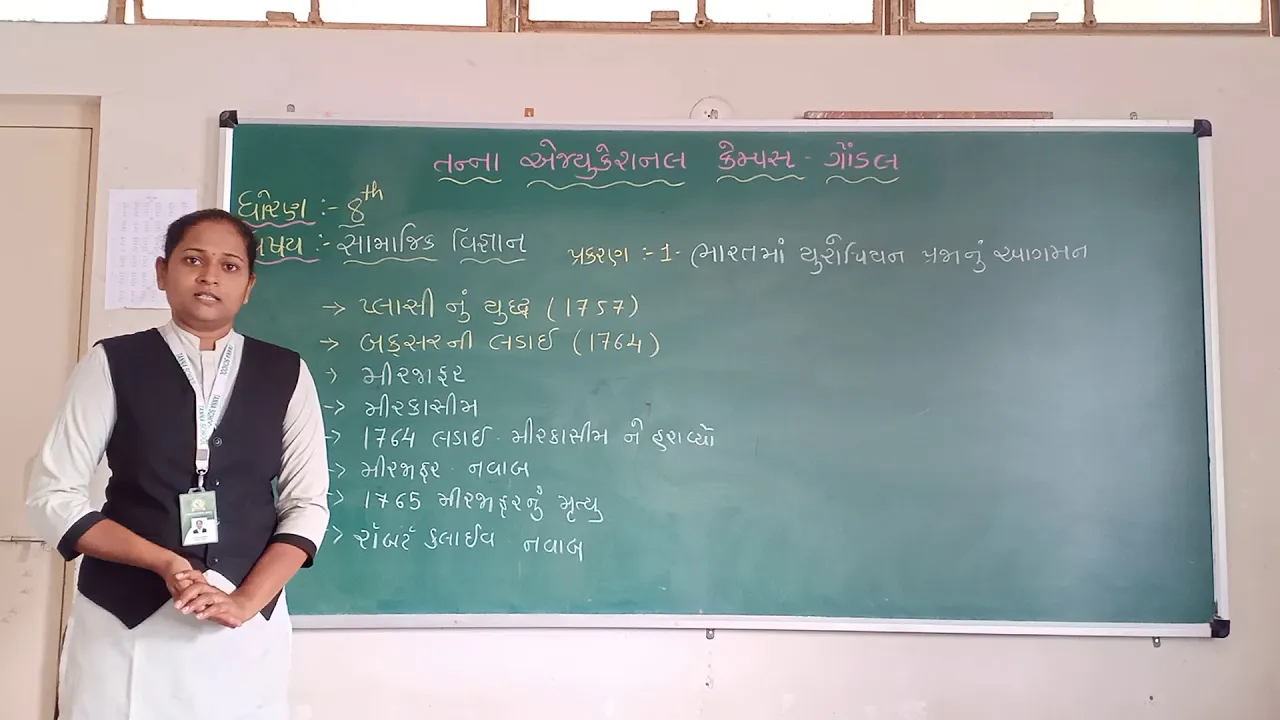 તન્ના એજ્યુકેશનલ કેમ્પસ - ગોંડલ
ધોરણ :- 8th
વિષય :- સામાજિક વિજ્ઞાન
પ્રકરણ :- 1. ભારતમાં યુરોપિયન પ્રજાનું આગમન
→ પ્લાસી નું યુદ્ધ (1757)
→ બક્સરની લડાઈ (1764)
→ મીરજાફર
→ મીરકાસીમ
→ 1764 લડાઈ - મીરકાસીમ ને હરાવ્યો
→ મીરજાફર - નવાબ
→ 1765 મીરજાફરનું મૃત્યુ
→ રૉબર્ટ ક્લાઈવ - નવાબ